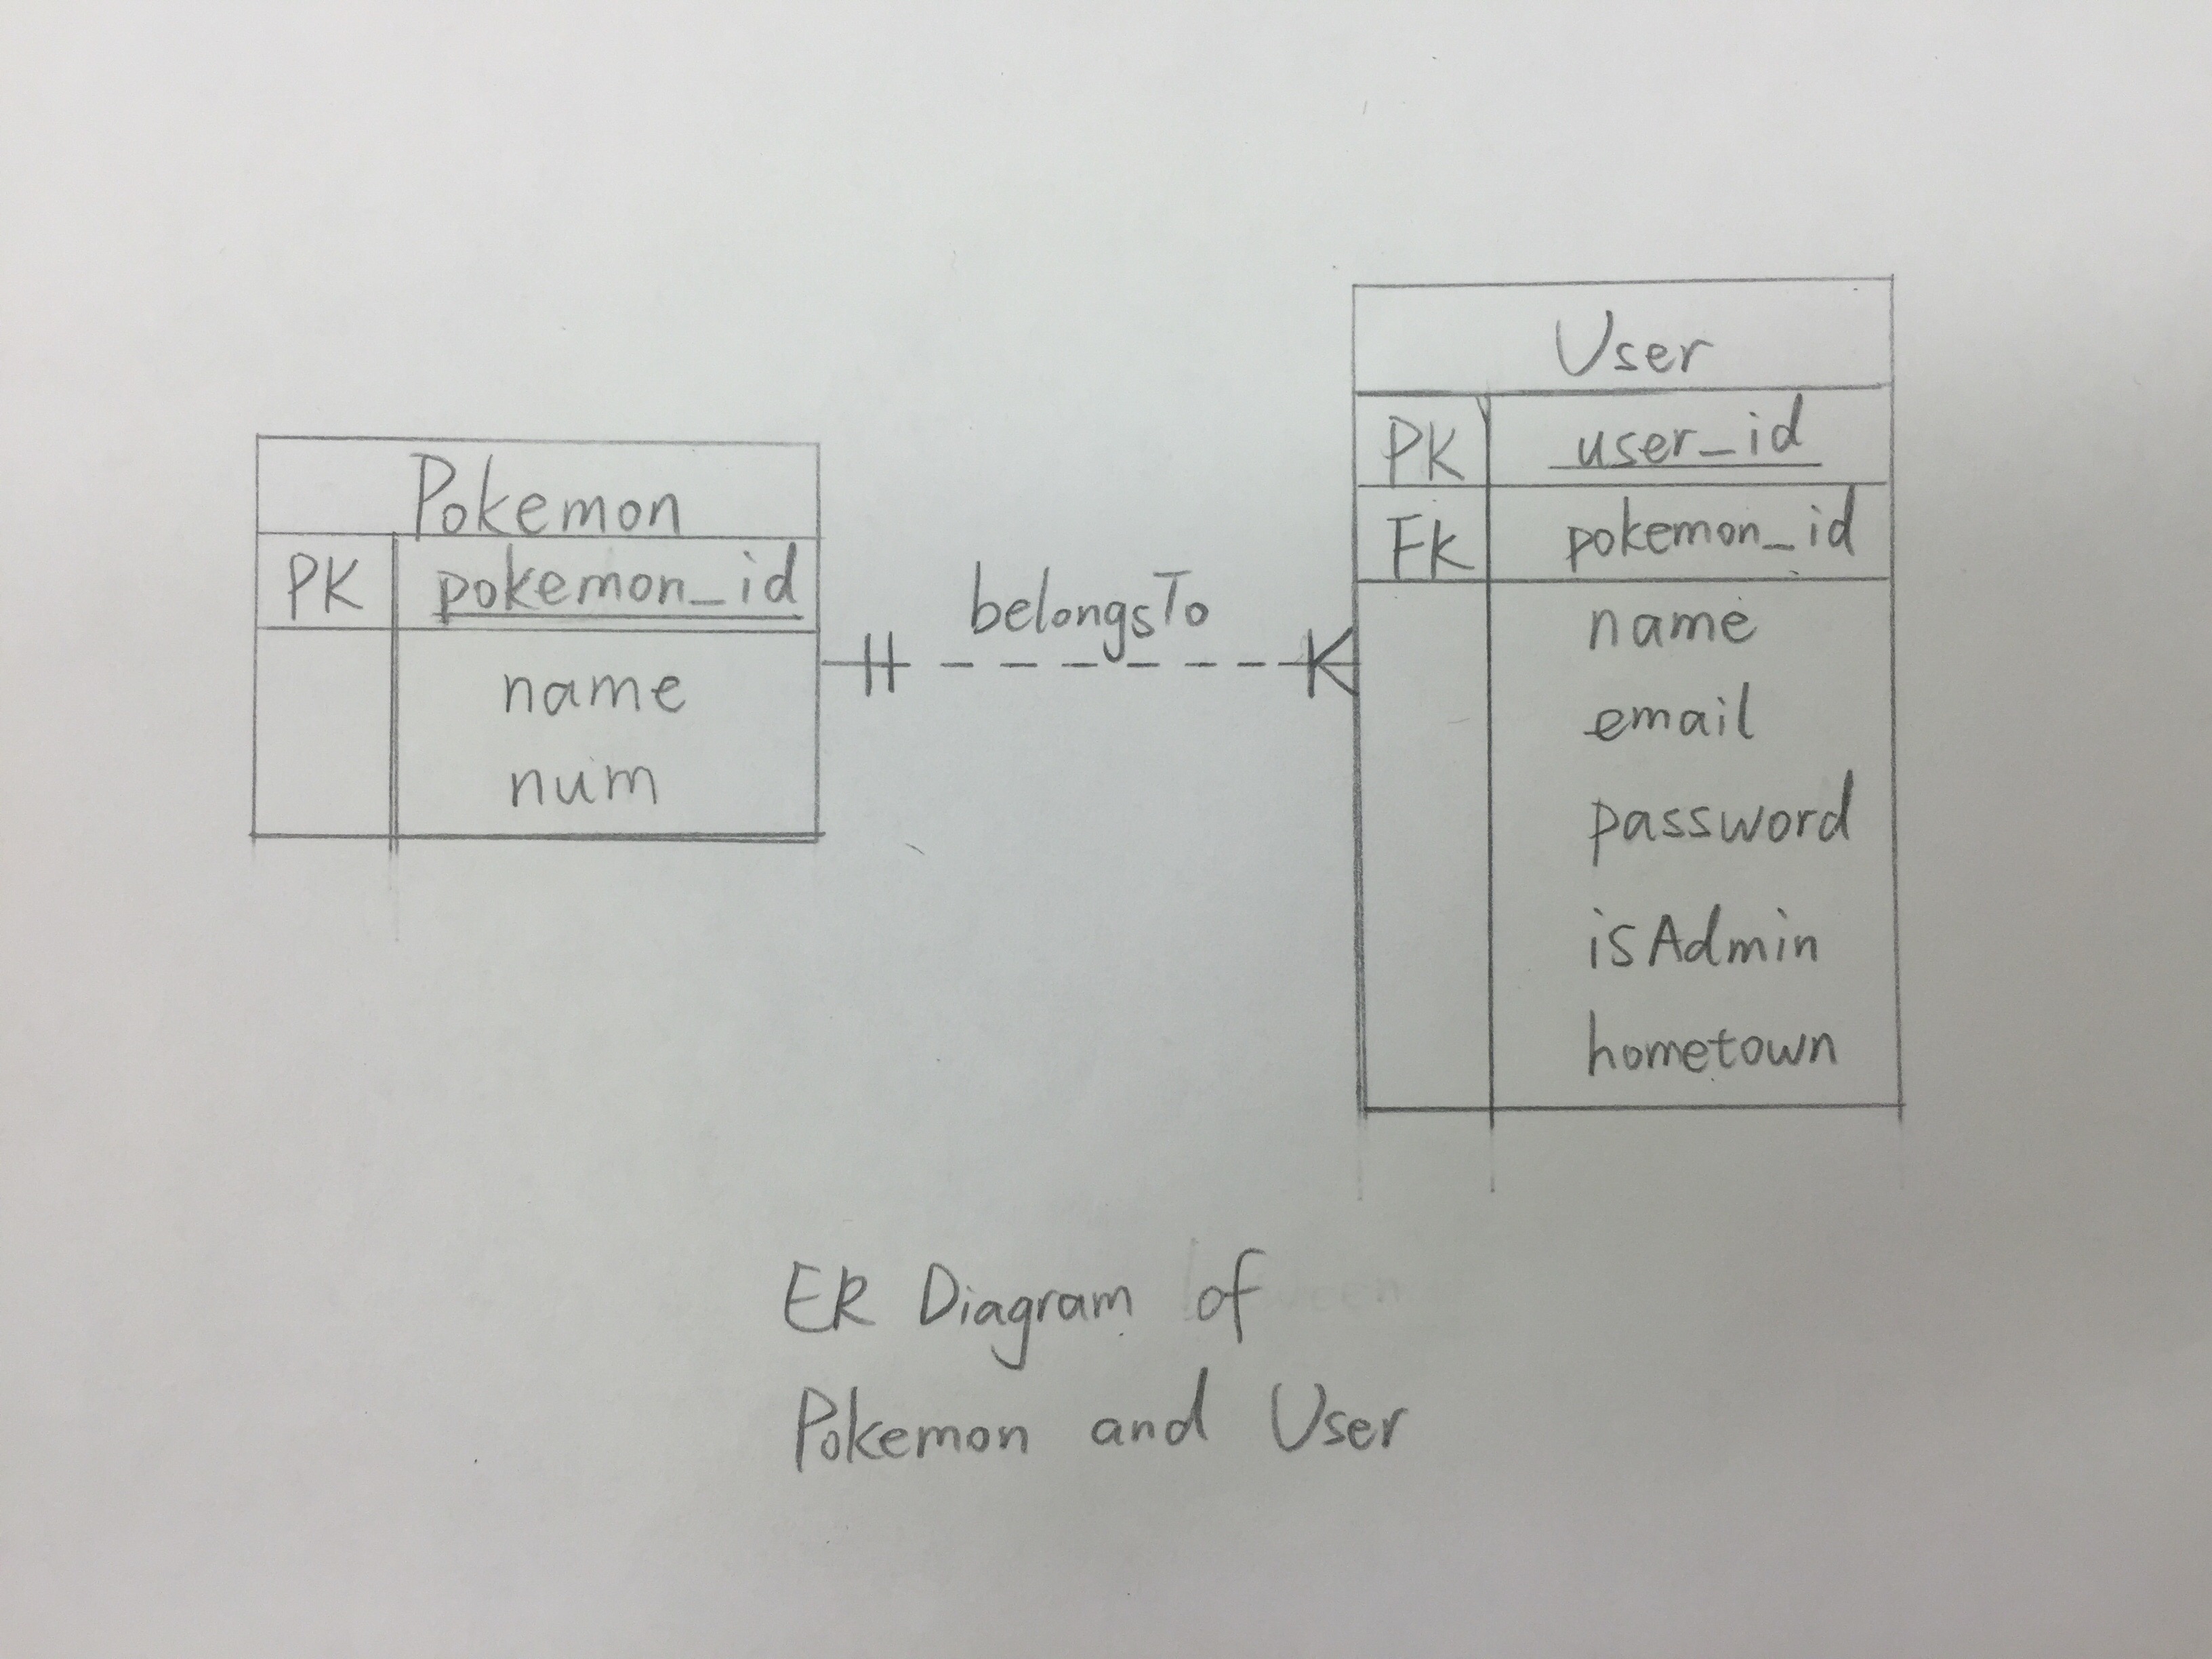 Pokemon
PK pokemon_id
name
num
belongsTo
User
PK user_id
FK pokemon_id
name
email
password
isAdmin
hometown
ER Diagram of
Pokemon and User